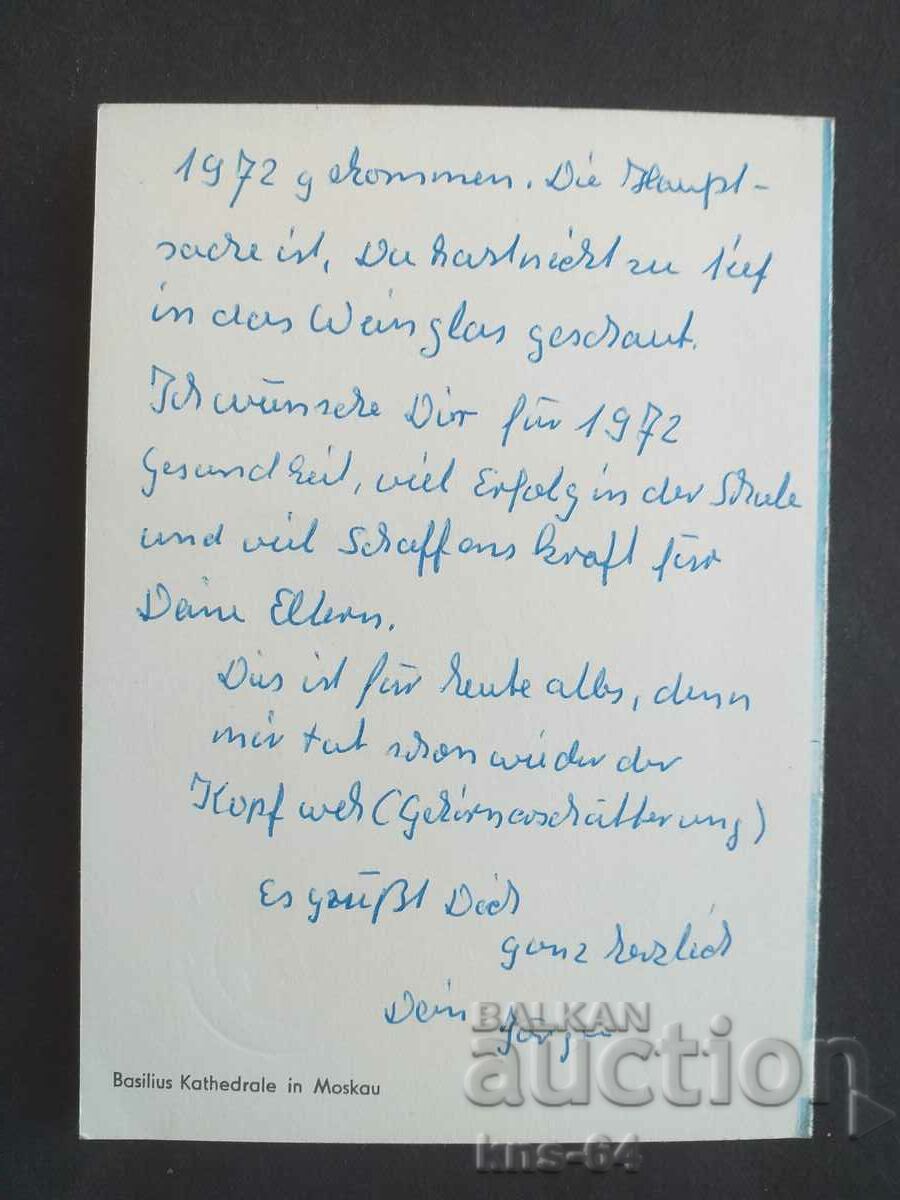 1972 gekommen. Die Haupt-
sache ist, Du hast nicht zu tief
in das Weinglas geschaut.
Ich wünsche Dir für 1972
Gesundheit, viel Erfolg in der Schule
und viel Schaffenskraft für
Deine Eltern.
Dies ist für heute alles, denn
mir tut schon wieder der
Kopf weh (Gehirnerschütterung)
Es grüßt Dich
ganz herzlich
Dein
BALKAN
auction
kns-64
Basilius Kathedrale in Moskau